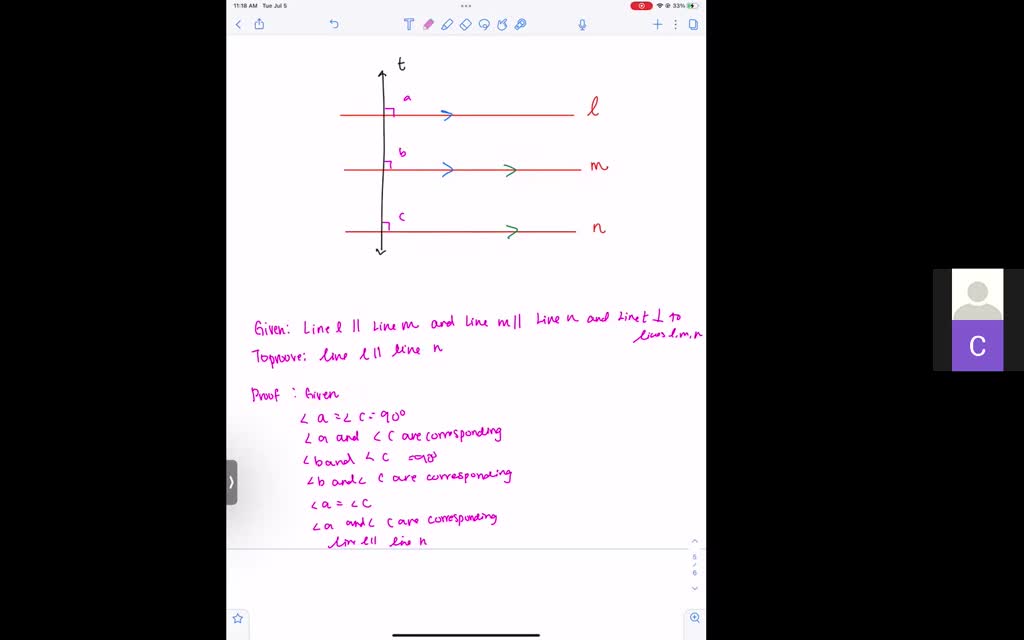 11:18 AM Tue Jul 5
33%
t
a
l
b
m
c
n
Given: Line l || Line m and Line m || Line n and Line t ⊥ to
lines l, m, n
To proove: line l || line n
Proof : Given
∠ a = ∠ c = 90°
∠ a and ∠ c are corresponding
∠ b and ∠ c = 90°
∠ b and ∠ c are corresponding
∠ a = ∠ c
∠ a and ∠ c are corresponding
line l || line n
5
/
6
C